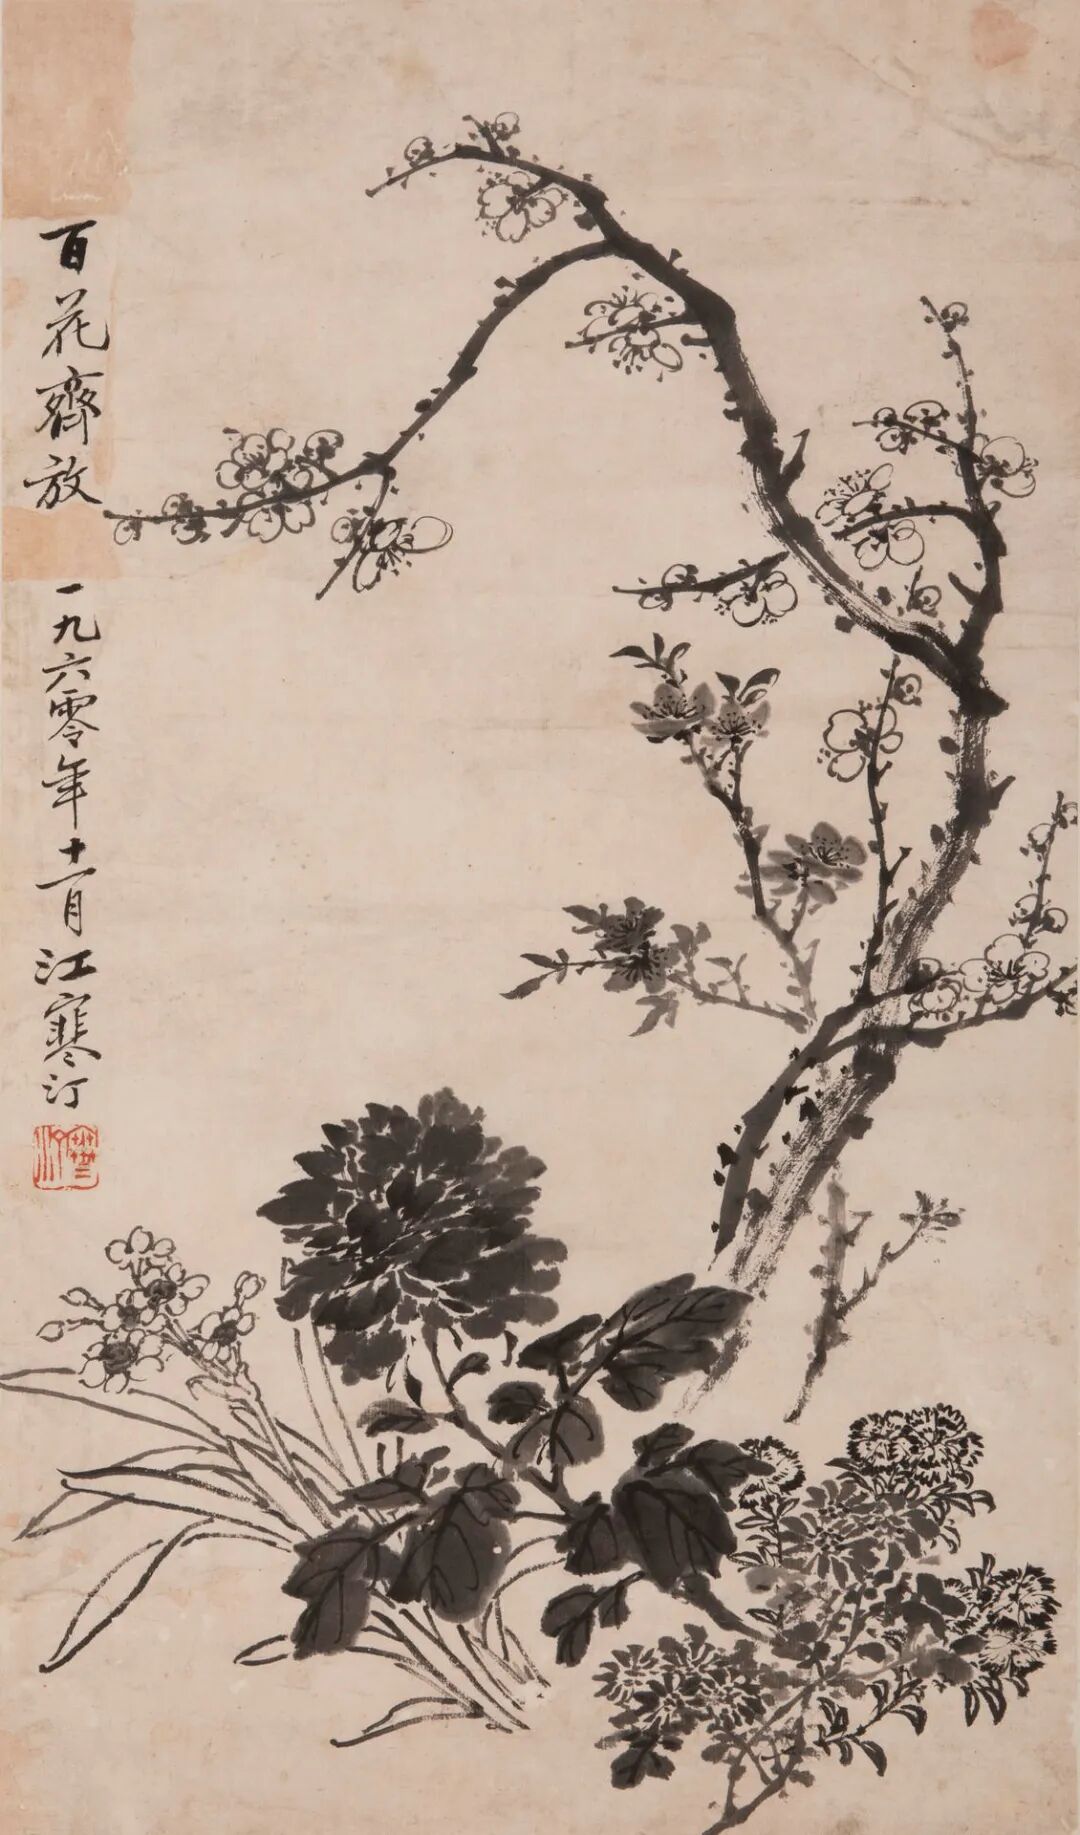 百花齊放
一九六零年十一月江寒汀
寒汀